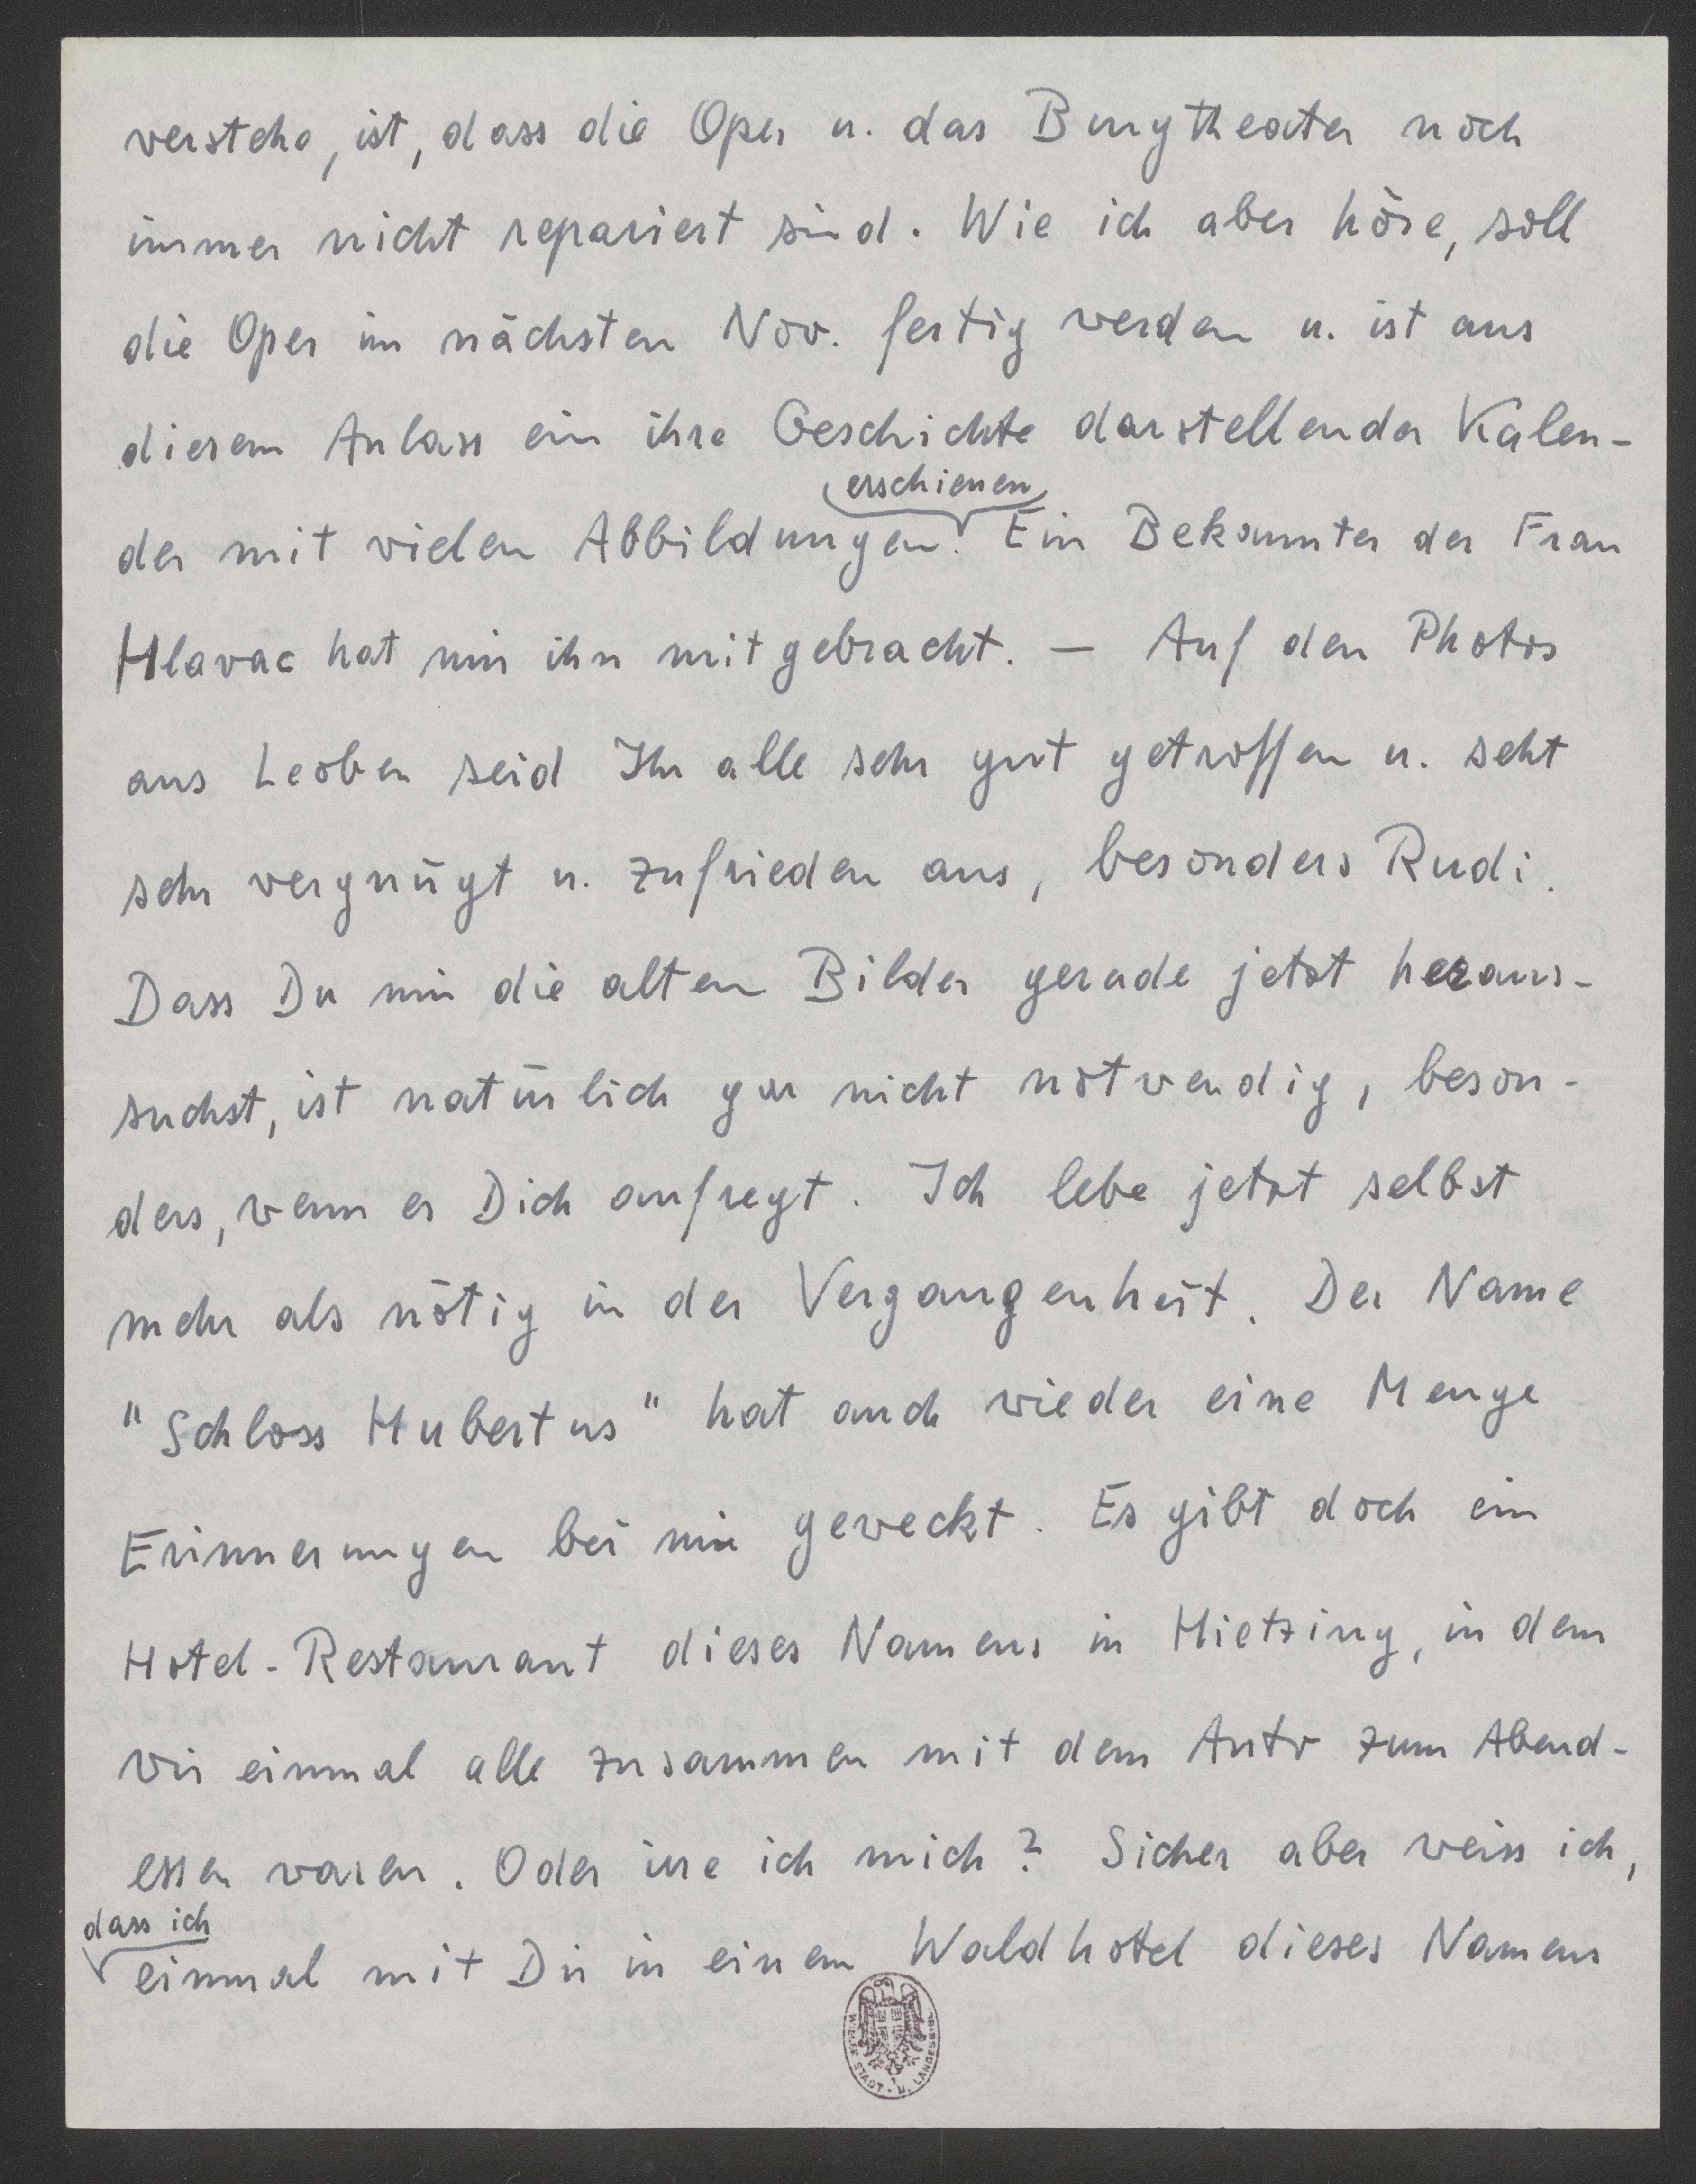 verstehe, ist, dass die Oper u. das Burgtheater noch
immer nicht repariert sind. Wie ich aber höre, soll
die Oper im nächsten Nov. fertig werden u. ist aus
diesem Anlass ein ihre Geschichte darstellender Kalen-
erschienen
der mit vielen Abbildungen. Ein Bekannter der Frau
Hlavac hat mir ihn mitgebracht. — Auf den Photos
aus Leoben seid Ihr alle sehr gut getroffen u. seht
sehr vergnügt u. zufrieden aus, besonders Rudi.
Dass Du mir die alten Bilder gerade jetzt heraus-
suchst, ist natürlich gar nicht notwendig, beson-
ders, wenn es Dich aufregt. Ich lebe jetzt selbst
mehr als nötig in der Vergangenheit. Der Name
"Schloss Hubertus" hat auch wieder eine Menge
Erinnerungen bei mir geweckt. Es gibt doch ein
Hotel-Restaurant dieses Namens in Hietzing, in dem
wir einmal alle zusammen mit dem Auto zum Abend-
essen waren. Oder irre ich mich? Sicher aber weiss ich,
dass ich
einmal mit Dir in einem Waldhotel dieses Namens
WIENER STADT- U. LANDESBIBL.